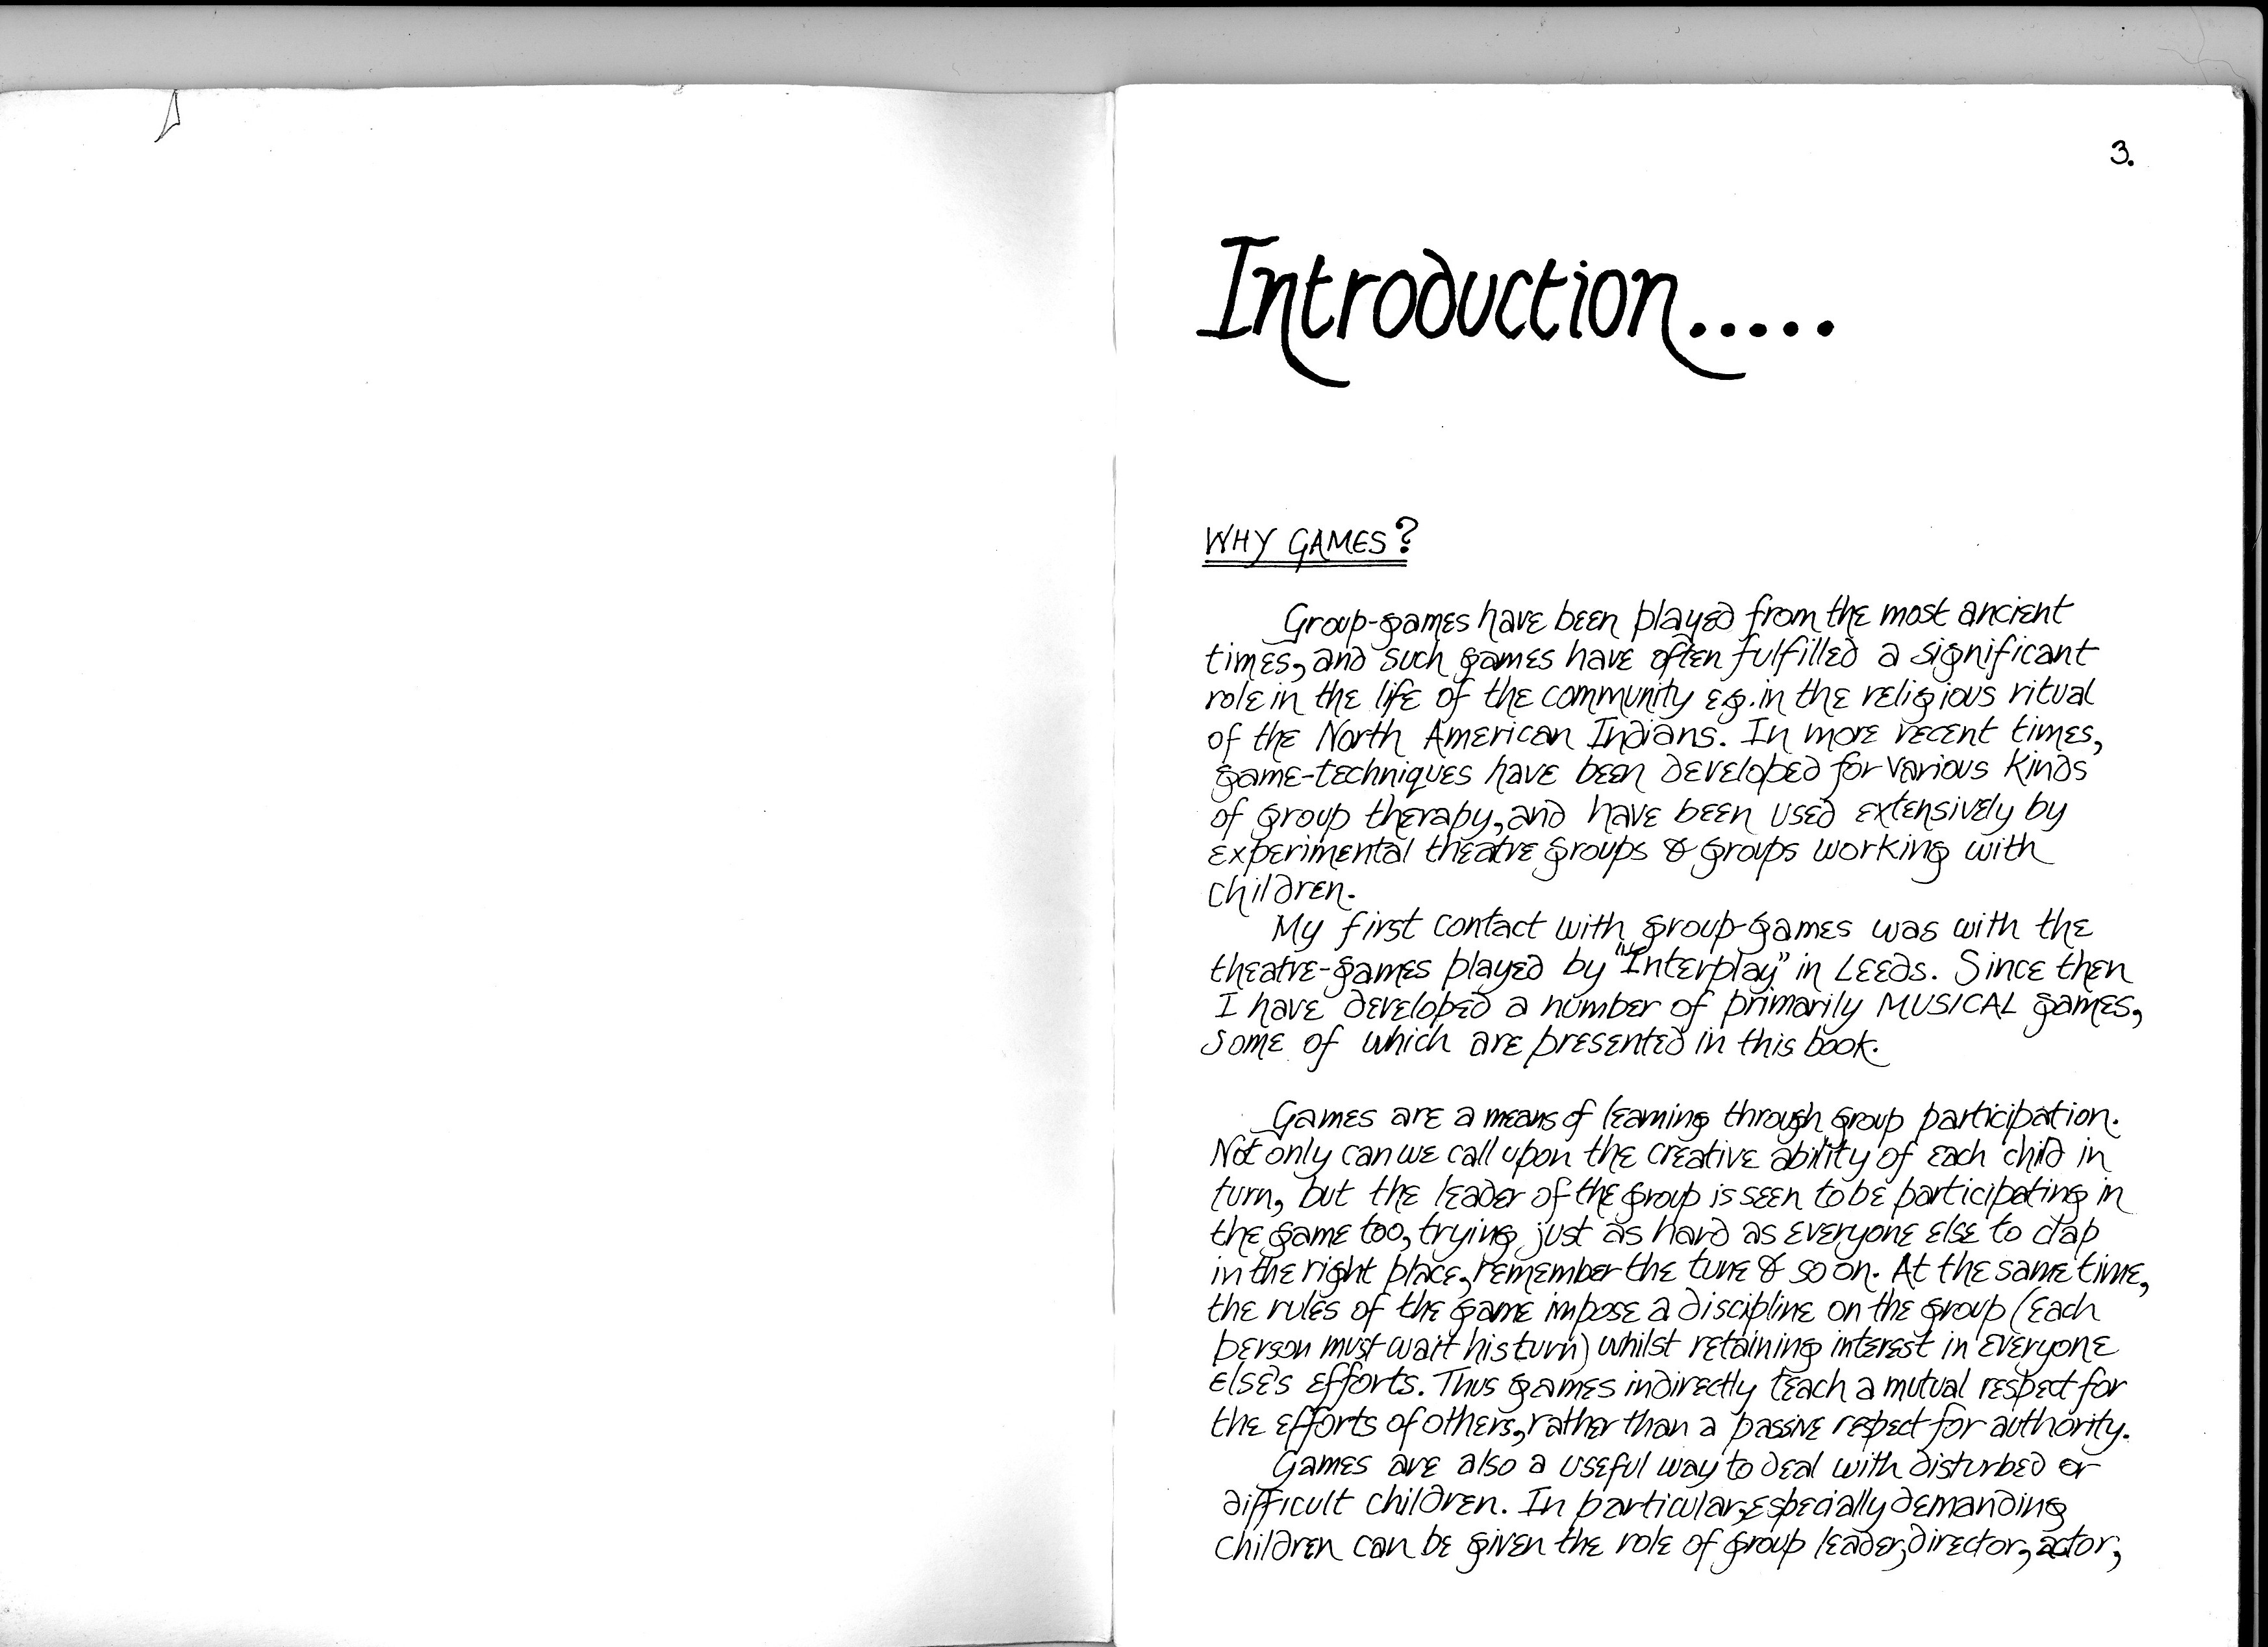 3.
Introduction.....
WHY GAMES?
Group-games have been played from the most ancient
times, and such games have often fulfilled a significant
role in the life of the community eg. in the religious ritual
of the North American Indians. In more recent times,
game-techniques have been developed for various kinds
of group therapy, and have been used extensively by
experimental theatre groups & groups working with
children.
My first contact with group-games was with the
theatre-games played by "Interplay" in Leeds. Since then
I have developed a number of primarily MUSICAL games,
some of which are presented in this book.
Games are a means of learning through group participation.
Not only can we call upon the creative ability of each child in
turn, but the leader of the group is seen to be participating in
the game too, trying just as hard as everyone else to clap
in the right place, remember the tune & so on. At the same time,
the rules of the game impose a discipline on the group (each
person must wait his turn) whilst retaining interest in everyone
else's efforts. Thus games indirectly teach a mutual respect for
the efforts of others, rather than a passive respect for authority.
Games are also a useful way to deal with disturbed or
difficult children. In particular, especially demanding
children can be given the role of group leader, director, actor,